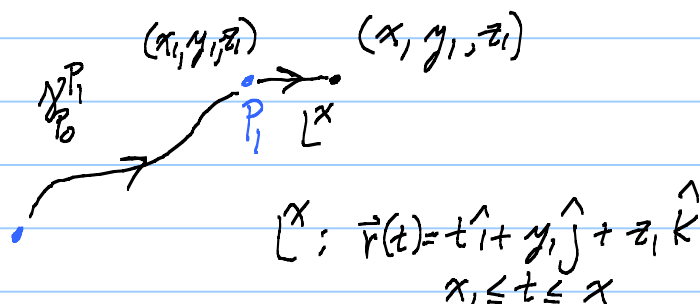 (x₁, y₁, z₁) (x, y₁, z₁)
γ_{P₀}^{P₁}
P₁ Lˣ
Lˣ: r⃗(t) = t î + y₁ ĵ + z₁ k̂
x₁ ≤ t ≤ x